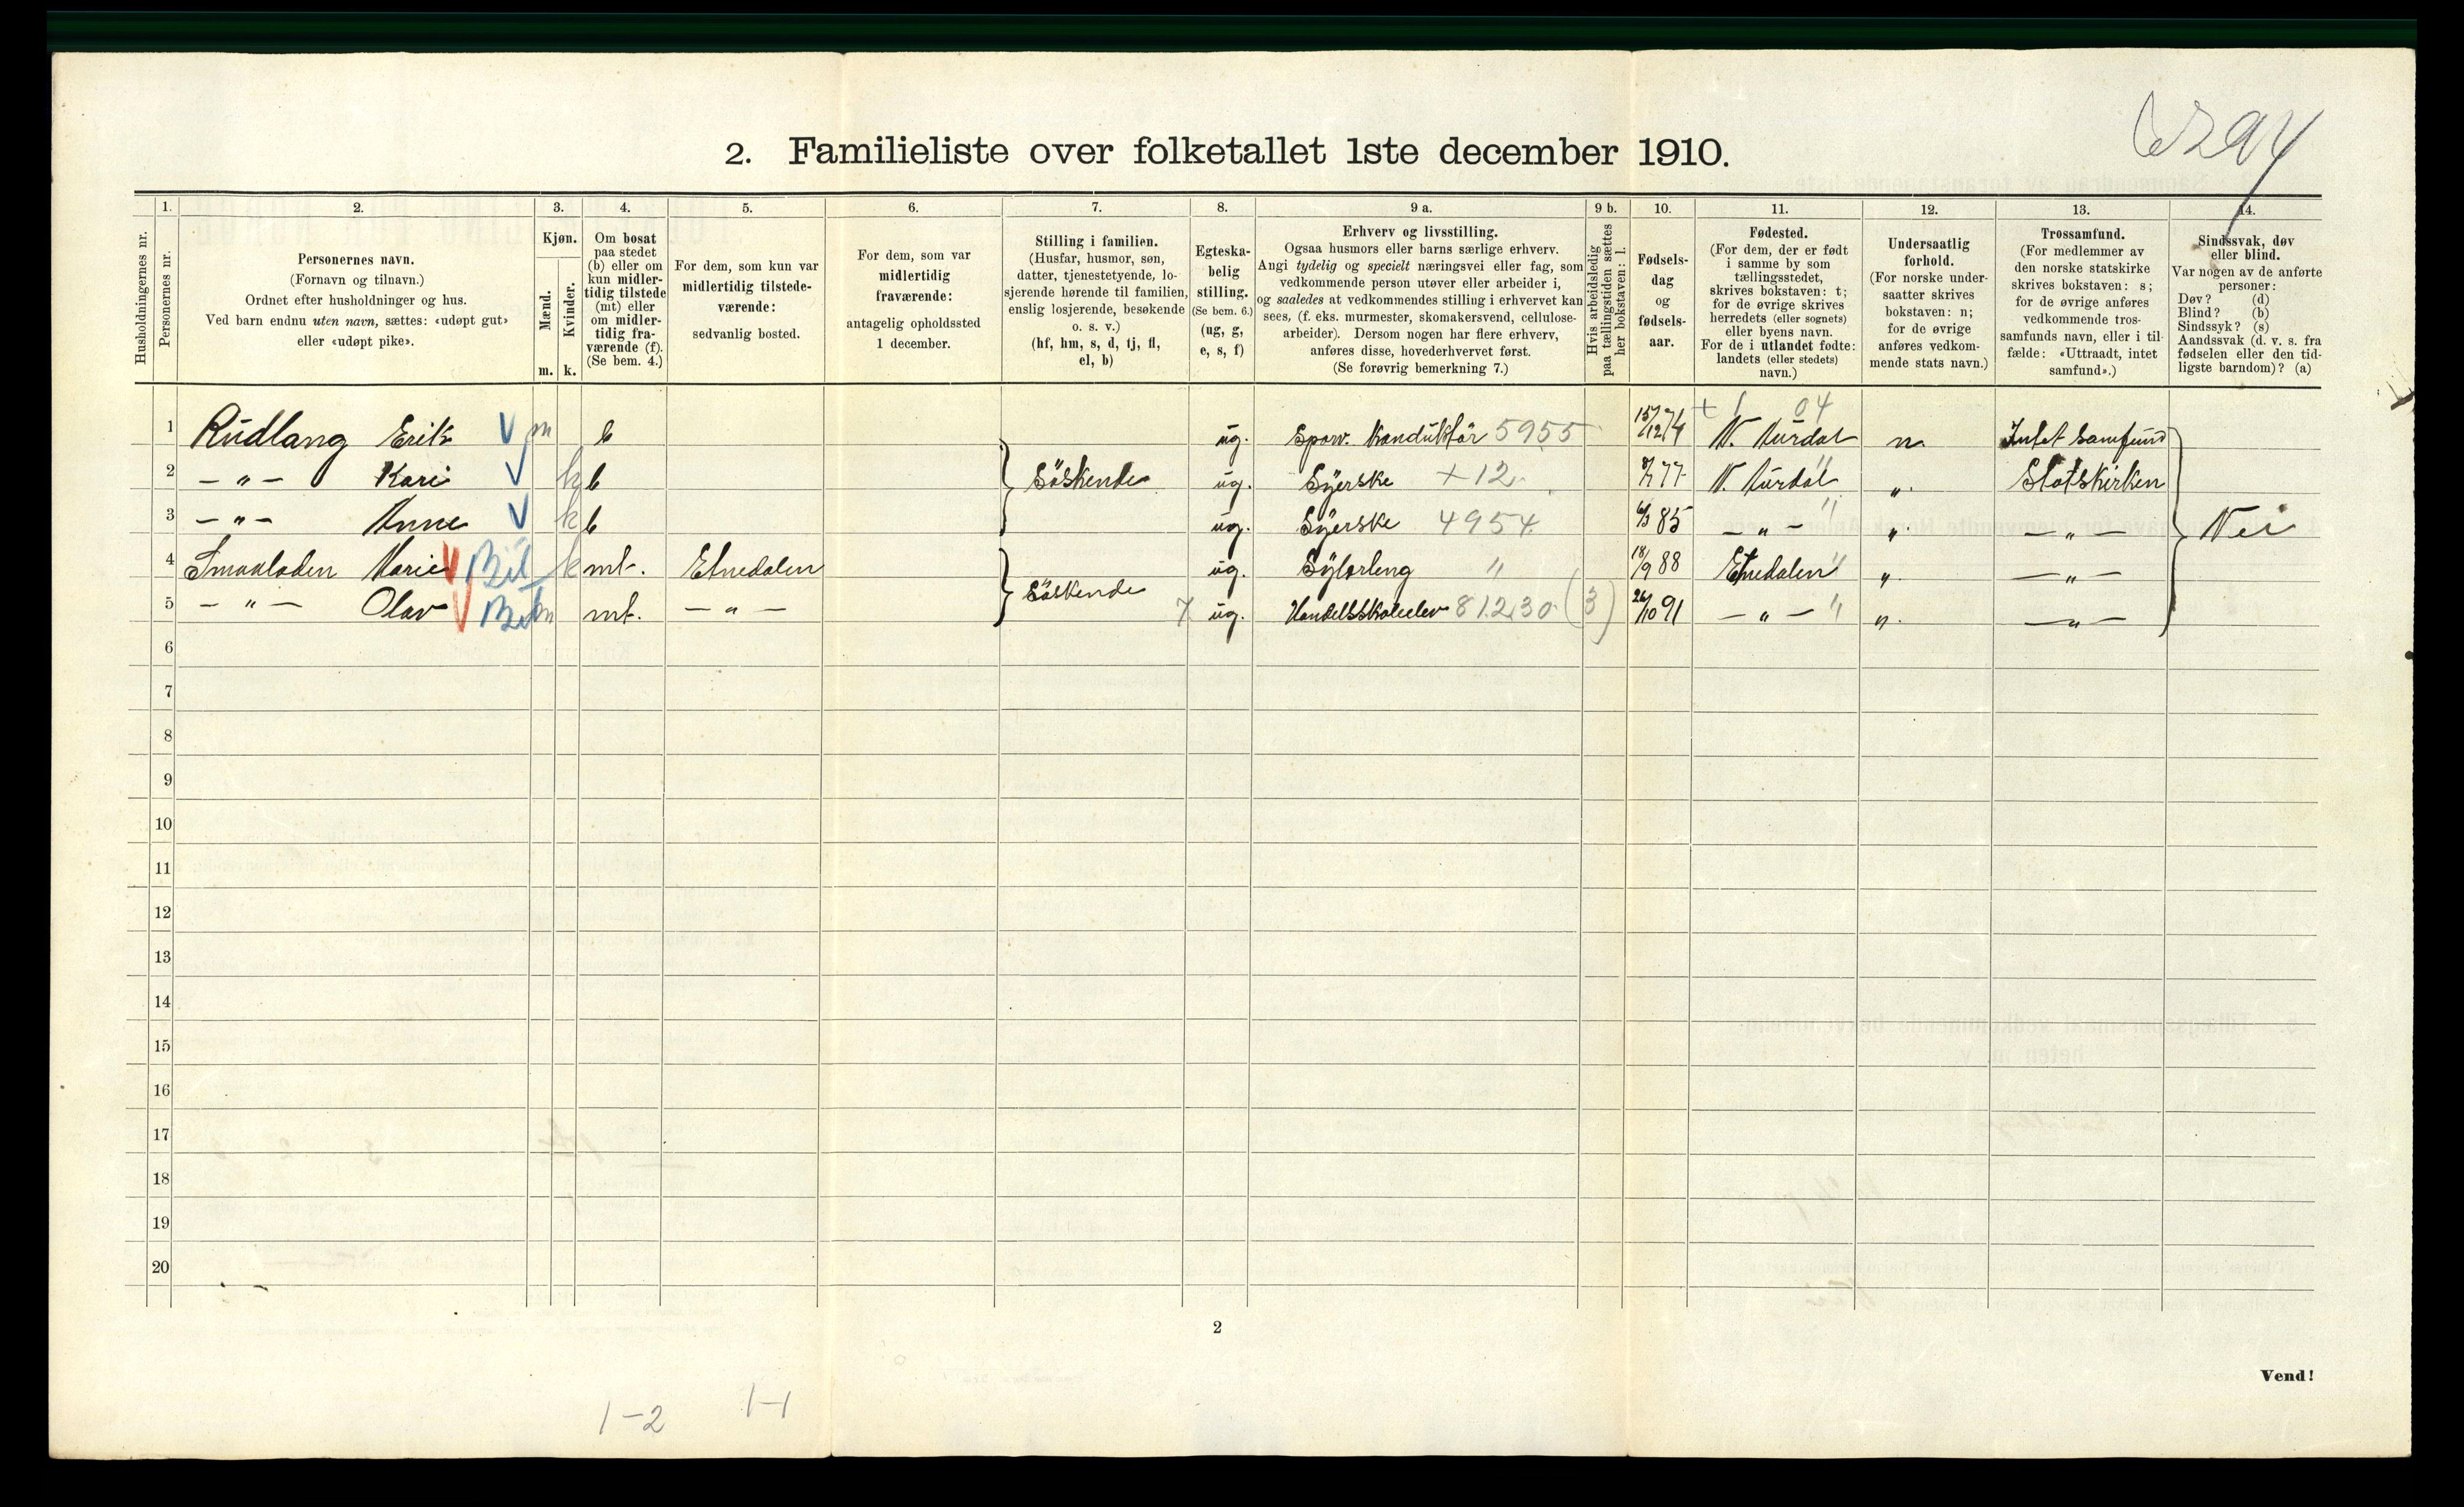 6294
2. Familieliste over folketallet 1ste december 1910.
1. 2. 3. 4. 5. 6. 7. 8. 9 a. 9 b. 10. 11. 12. 13. 14.
Husholdningernes nr.
Personernes nr.
Personernes navn.
(Fornavn og tilnavn.)
Ordnet efter husholdninger og hus.
Ved barn endnu uten navn, sættes: «udøpt gut»
eller «udøpt pike».
Kjøn.
Mænd.
Kvinder.
m. k.
Om bosat
paa stedet
(b) eller om
kun midler-
tidig tilstede
(mt) eller
om midler-
tidig fra-
værende (f).
(Se bem. 4.)
For dem, som kun var
midlertidig tilstede-
værende:
sedvanlig bosted.
For dem, som var
midlertidig
fraværende:
antagelig opholdssted
1 december.
Stilling i familien.
(Husfar, husmor, søn,
datter, tjenestetyende, lo-
sjerende hørende til familien,
enslig losjerende, besøkende
o. s. v.)
(hf, hm, s, d, tj, fl,
el, b)
Egteska-
belig
stilling.
(Se bem. 6.)
(ug, g,
e, s, f)
Erhverv og livsstilling.
Ogsaa husmors eller barns særlige erhverv.
Angi tydelig og specielt næringsvei eller fag, som
vedkommende person utøver eller arbeider i,
og saaledes at vedkommendes stilling i erhvervet kan
sees, (f. eks. murmester, skomakersvend, cellulose-
arbeider). Dersom nogen har flere erhverv,
anføres disse, hovederhvervet først.
(Se forøvrig bemerkning 7.)
Hvis arbeidsledig
paa tællingstiden sættes
her bokstaven: l.
Fødsels-
dag
og
fødsels-
aar.
Fødested.
(For dem, der er født
i samme by som
tællingsstedet,
skrives bokstaven: t;
for de øvrige skrives
herredets (eller sognets)
eller byens navn.
For de i utlandet fødte:
landets (eller stedets)
navn.)
Undersaatlig
forhold.
(For norske under-
saatter skrives
bokstaven: n;
for de øvrige
anføres vedkom-
mende stats navn.)
Trossamfund.
(For medlemmer av
den norske statskirke
skrives bokstaven: s;
for de øvrige anføres
vedkommende tros-
samfunds navn, eller i til-
fælde: «Uttraadt, intet
samfund».)
Sindssvak, døv
eller blind.
Var nogen av de anførte
personer:
Døv? (d)
Blind? (b)
Sindssyk? (s)
Aandssvak (d. v. s. fra
fødselen eller den tid-
ligste barndom)? (a)
+ 1 04
1 Rudlang Erik V m b ug. Sporv. Konduktör 5955 15/12 74 N. Aurdal n. Intet Samfund
2 – „ – Kari V k b Söskende ug. Syerske +12 N. Aurdal „ Statskirken
3 – „ – Anne V k b ug. Syerske 4954 6/3 85 – „ – „ – „ – Nei
4 Smaaladen Marie V Bit k mt. Etnedalen ug. Sylærling „ 18/9 88 Etnedalen „ „ – „ –
5 – „ – Olav V Bit m mt. – „ – Söskende 7 ug. Handelsskoleelev 81230 (3) 26/10 91 – „ – „ „ – „ –
6
7
8
9
10
11
12
13
14
15
16
17
18
19
20
2
Vend!
1–2 1–1